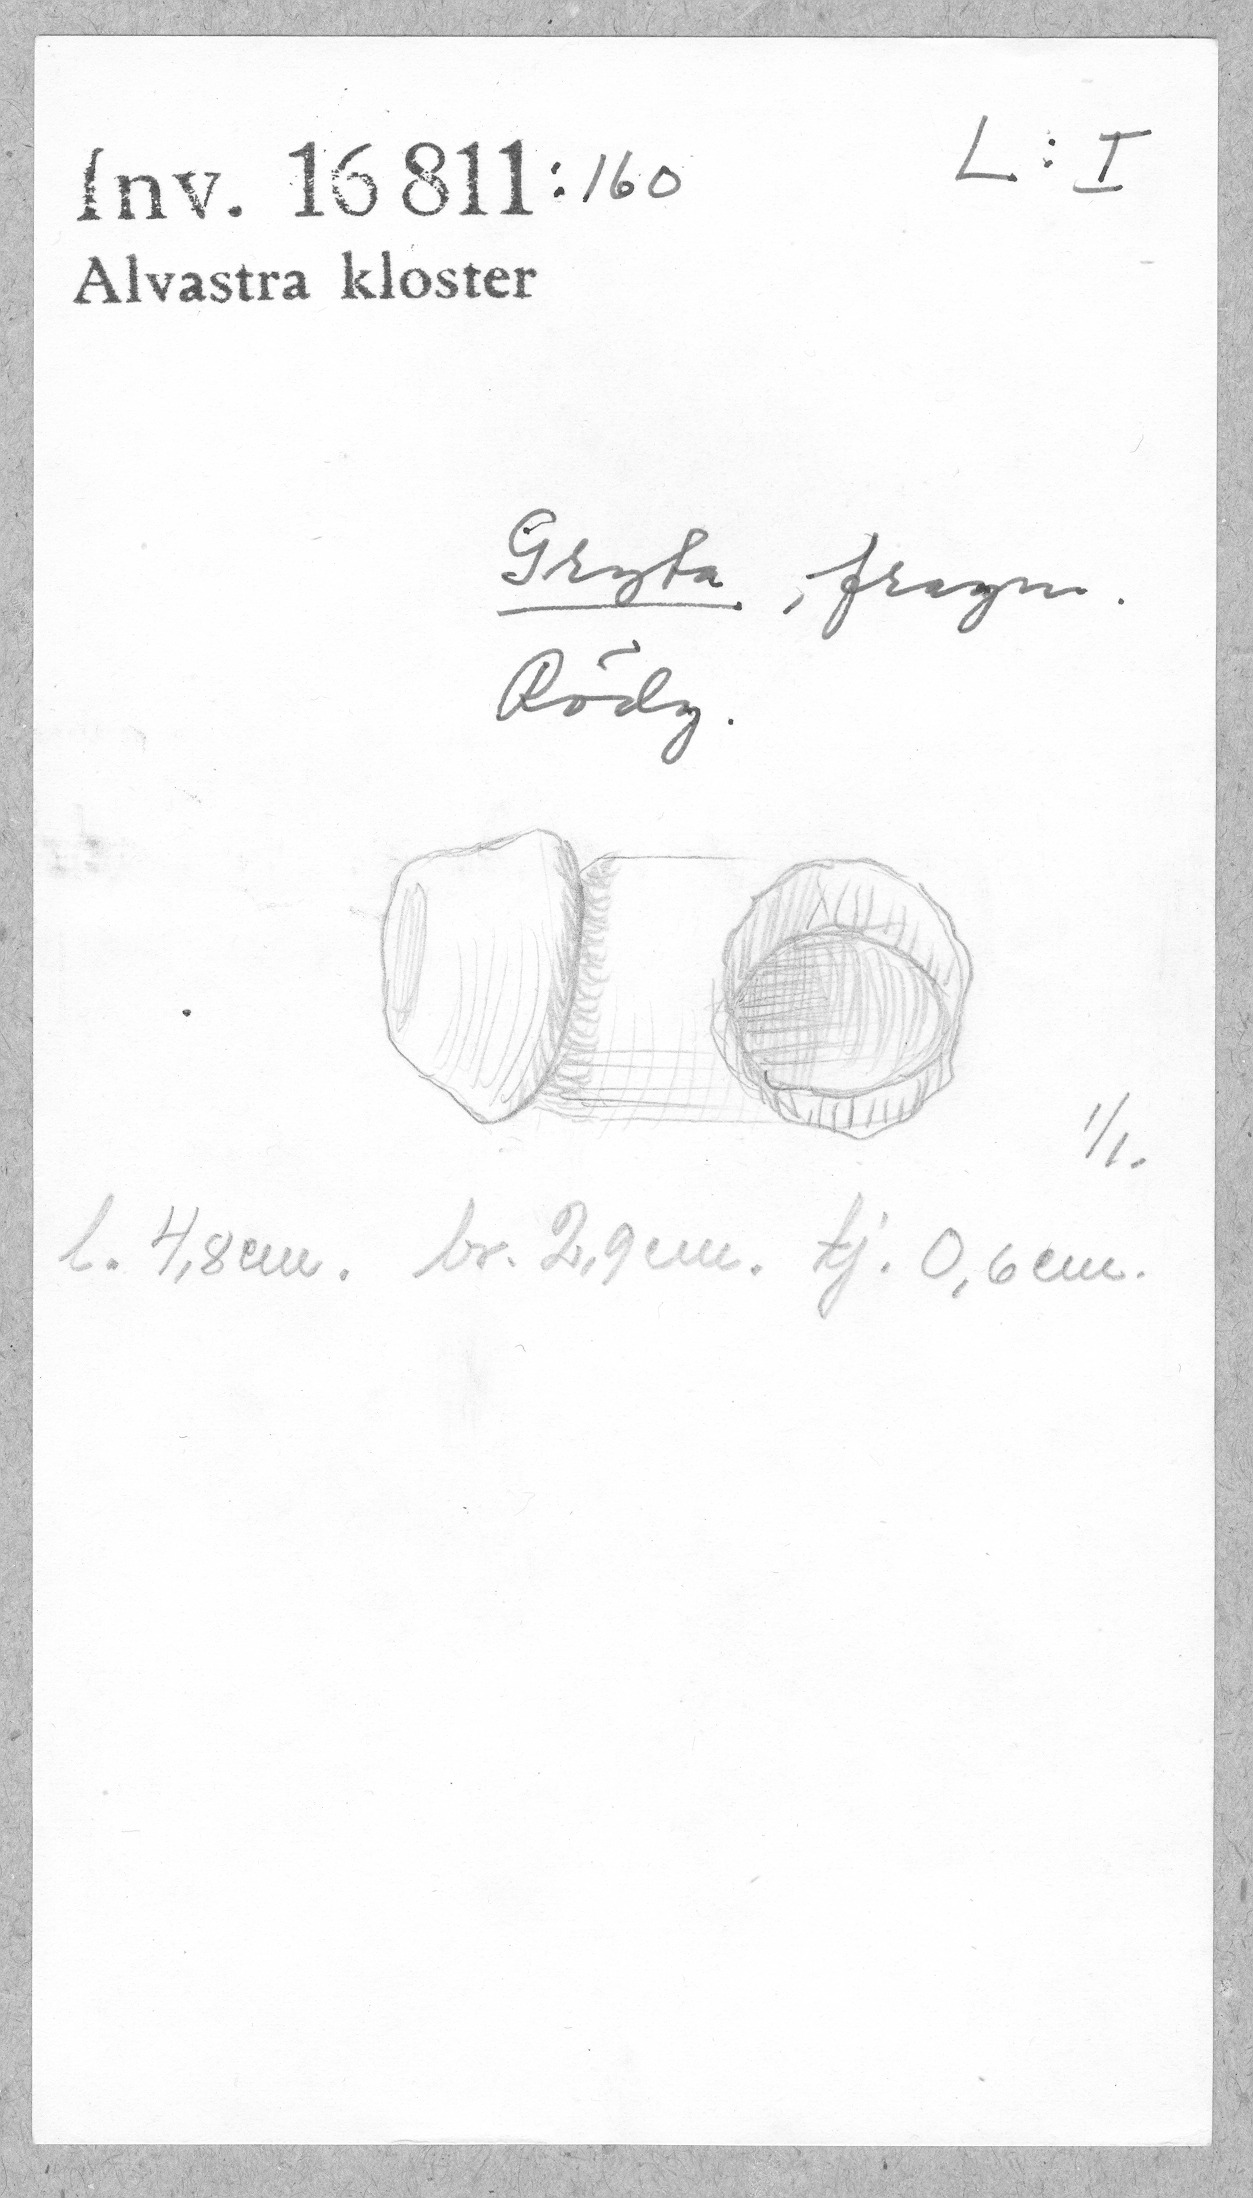 Inv. 16 811:160
L: I
Alvastra kloster
Gryta, fragm.
Rödg.
1/1.
l. 4,8 cm. br. 2,9 cm. tj. 0,6 cm.